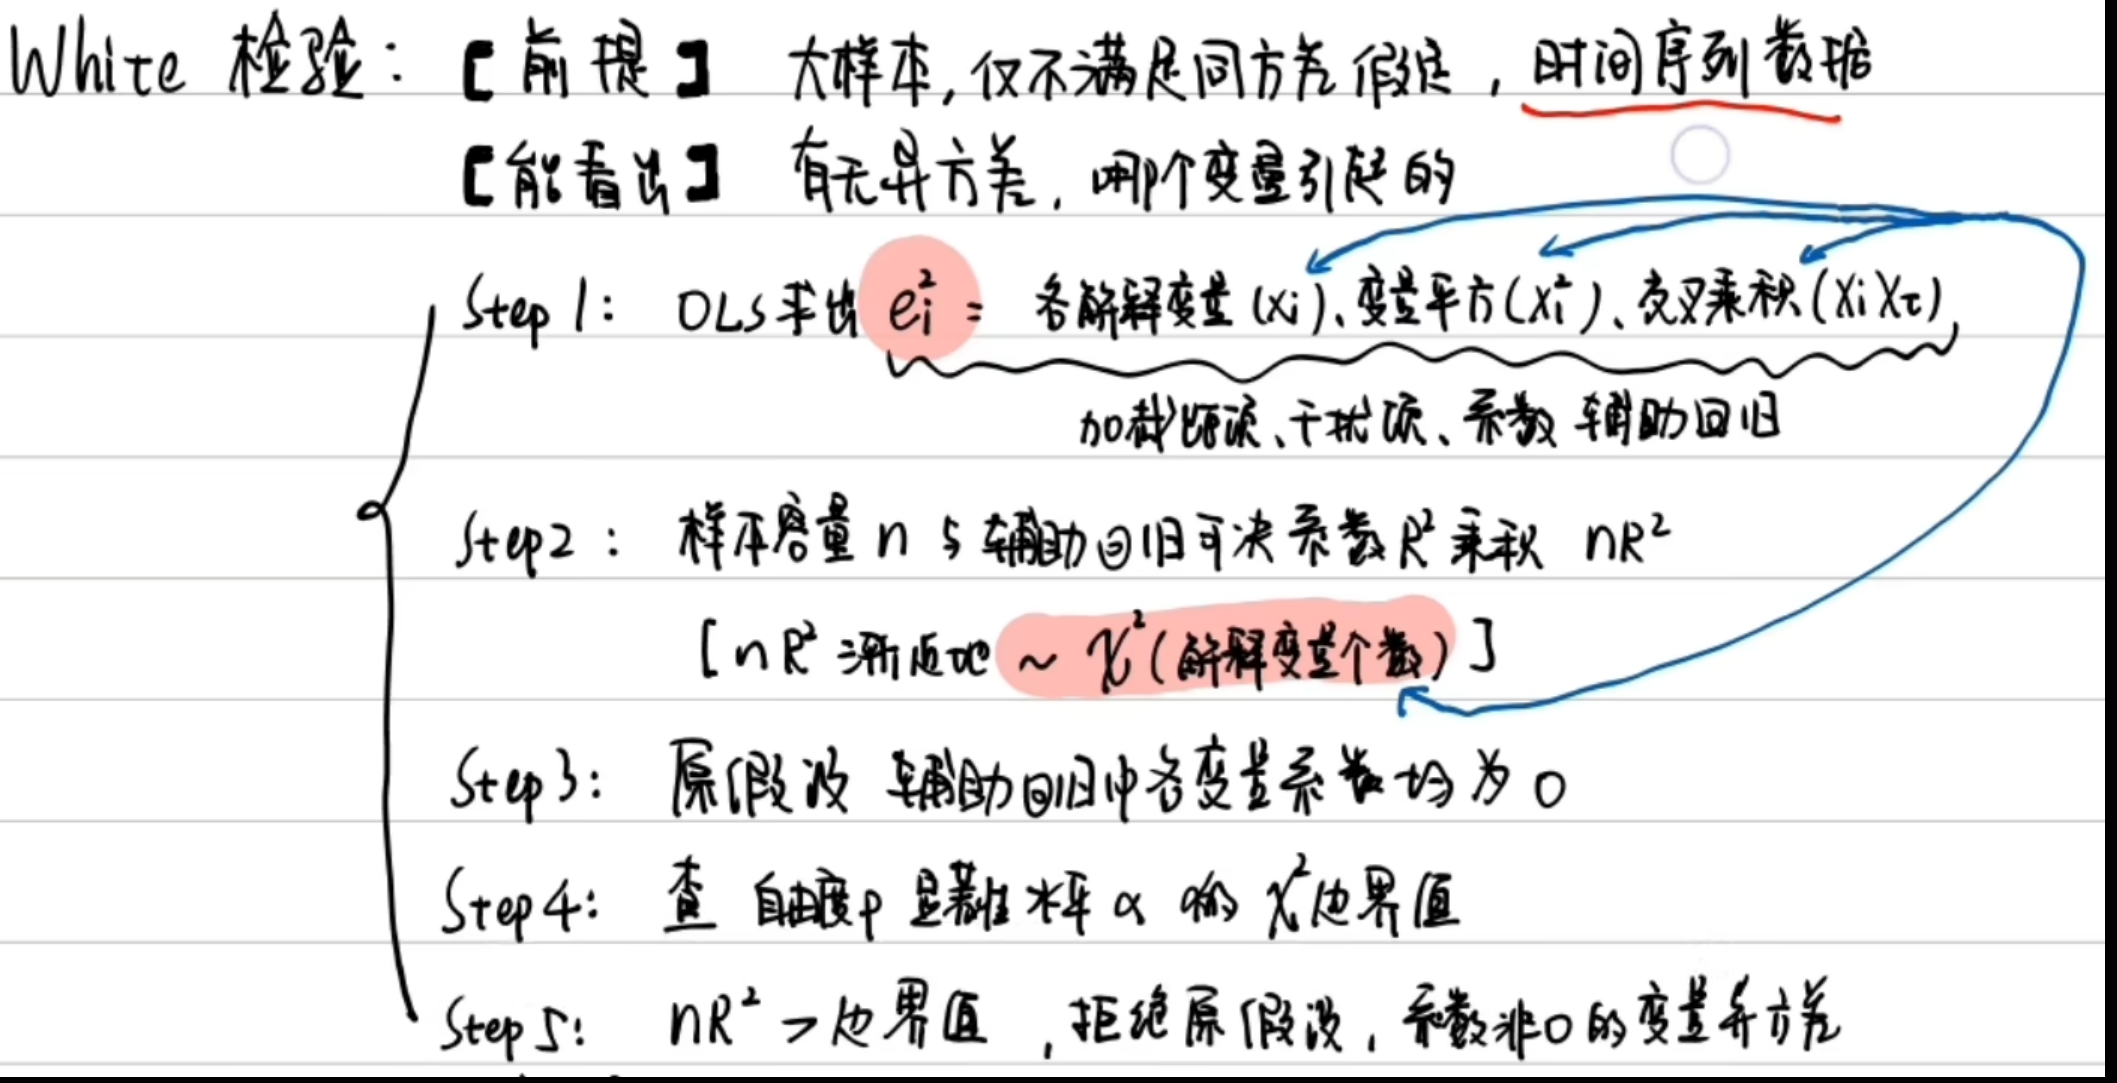 White 检验：【前提】 大样本，仅不满足同方差假定，时间序列数据
【能看出】 有无异方差，哪个变量引起的
Step 1： OLS求出 eᵢ² = 各解释变量(Xi)、变量平方(Xi²)、交叉乘积(XiXt)
加截距项、干扰项、系数 辅助回归
Step2： 样本容量 n 与辅助回归可决系数R²乘积 nR²
[nR² 渐近地 ~ χ²(解释变量个数)]
Step3： 原假设 辅助回归中各变量系数均为0
Step4： 查 自由度p 显著性水平 α 的 χ²边界值
Step5： nR² > 边界值，拒绝原假设，系数非0的变量异方差